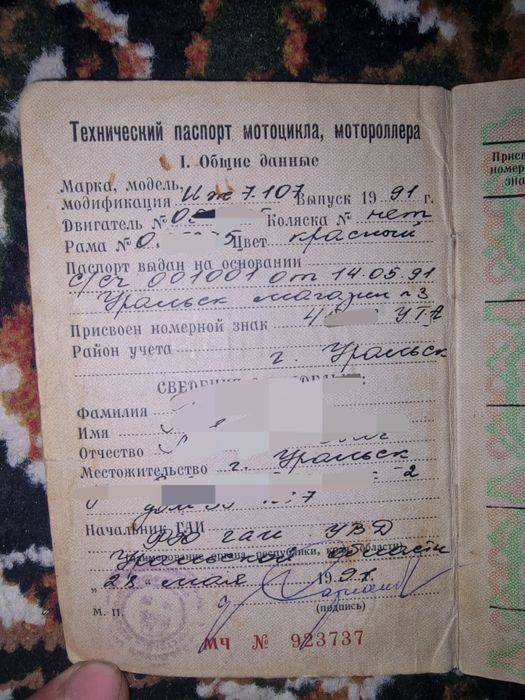 Технический паспорт мотоцикла, мотороллера
I. Общие данные
Марка, модель,
модификация Иж 7.107 Выпуск 1991 г.
Двигатель № 0 Коляска № нет
Рама № 0. 5 Цвет красный
Паспорт выдан на основании
с/сч 001001 от 14.05.91
Уральск магазин 3
Присвоен номерной знак 4 УТА
Район учета г. Уральск
СВЕДЕНИЯ
Фамилия
Имя
Отчество
Местожительство г. Уральск
2
7
Начальник ГАИ РЭО ГАИ УВД
Уральской области
„28 мая 1991
М. П. (подпись)
МЧ № 923737
Присв
номер
зна